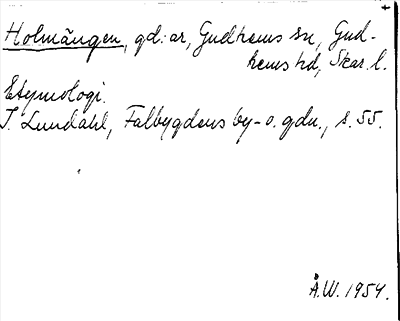 Holmängen, gd:ar, Gudhems sn, Gud-
hems hd, Skar. l.
Etymologi.
I. Lundahl, Falbygdens by- o. gdn., s. 55.
Å.W. 1954.